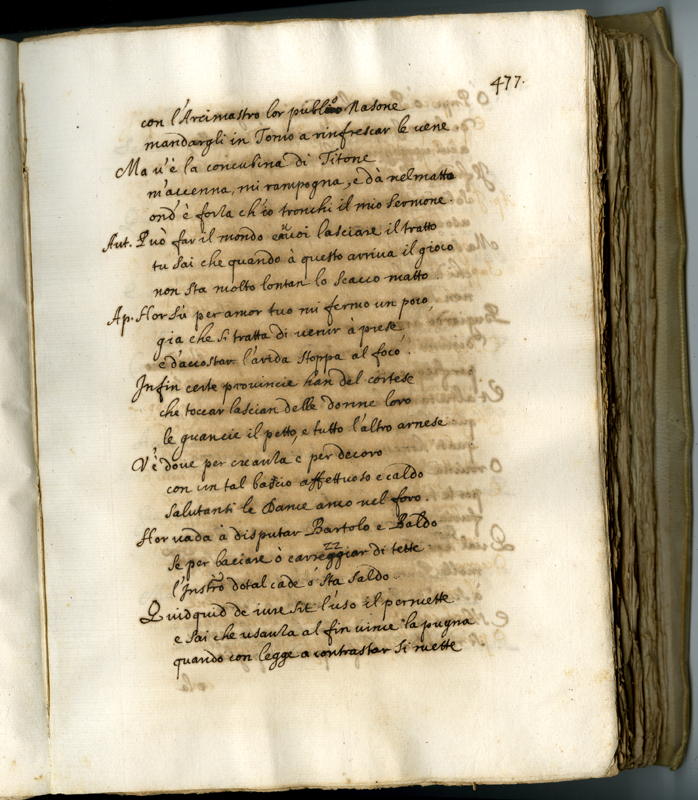 477.
con l'Arcimastro lor publ.co Nasone
mandargli in Tomo a rinfrescar le vene.
Ma v'è la concubina di Titone
m'accenna, mi rampogna, e dà nel matto
ond'è forza ch'io tronchi il mio sermone.
Aut. Può far il mondo e vuoi lasciare il tratto
tu sai che quando à questo arriva il gioco
non sta molto lontan lo scacco matto.
Ap. Hor sù per amor tuo mi fermo un poco,
gia che si tratta di venir à prese
e d'accostar l'arida stoppa al foco.
Infin certe provincie han del cortese
che toccar lascian delle donne loro
le guancie il petto, e tutto l'altro arnese
V'è dove per creanza e per decoro
con un tal bascio affettuoso e caldo
salutanti le Dame anco nel foro.
Hor vada à disputar Bartolo e Baldo
se per baciare ò carezzar di tette
l'Instro dotal cade ò sta saldo.
Quidquid de iure sit l'uso il permette
e sai che usanza al fin vince la pugna
quando con legge a contrastar si mette